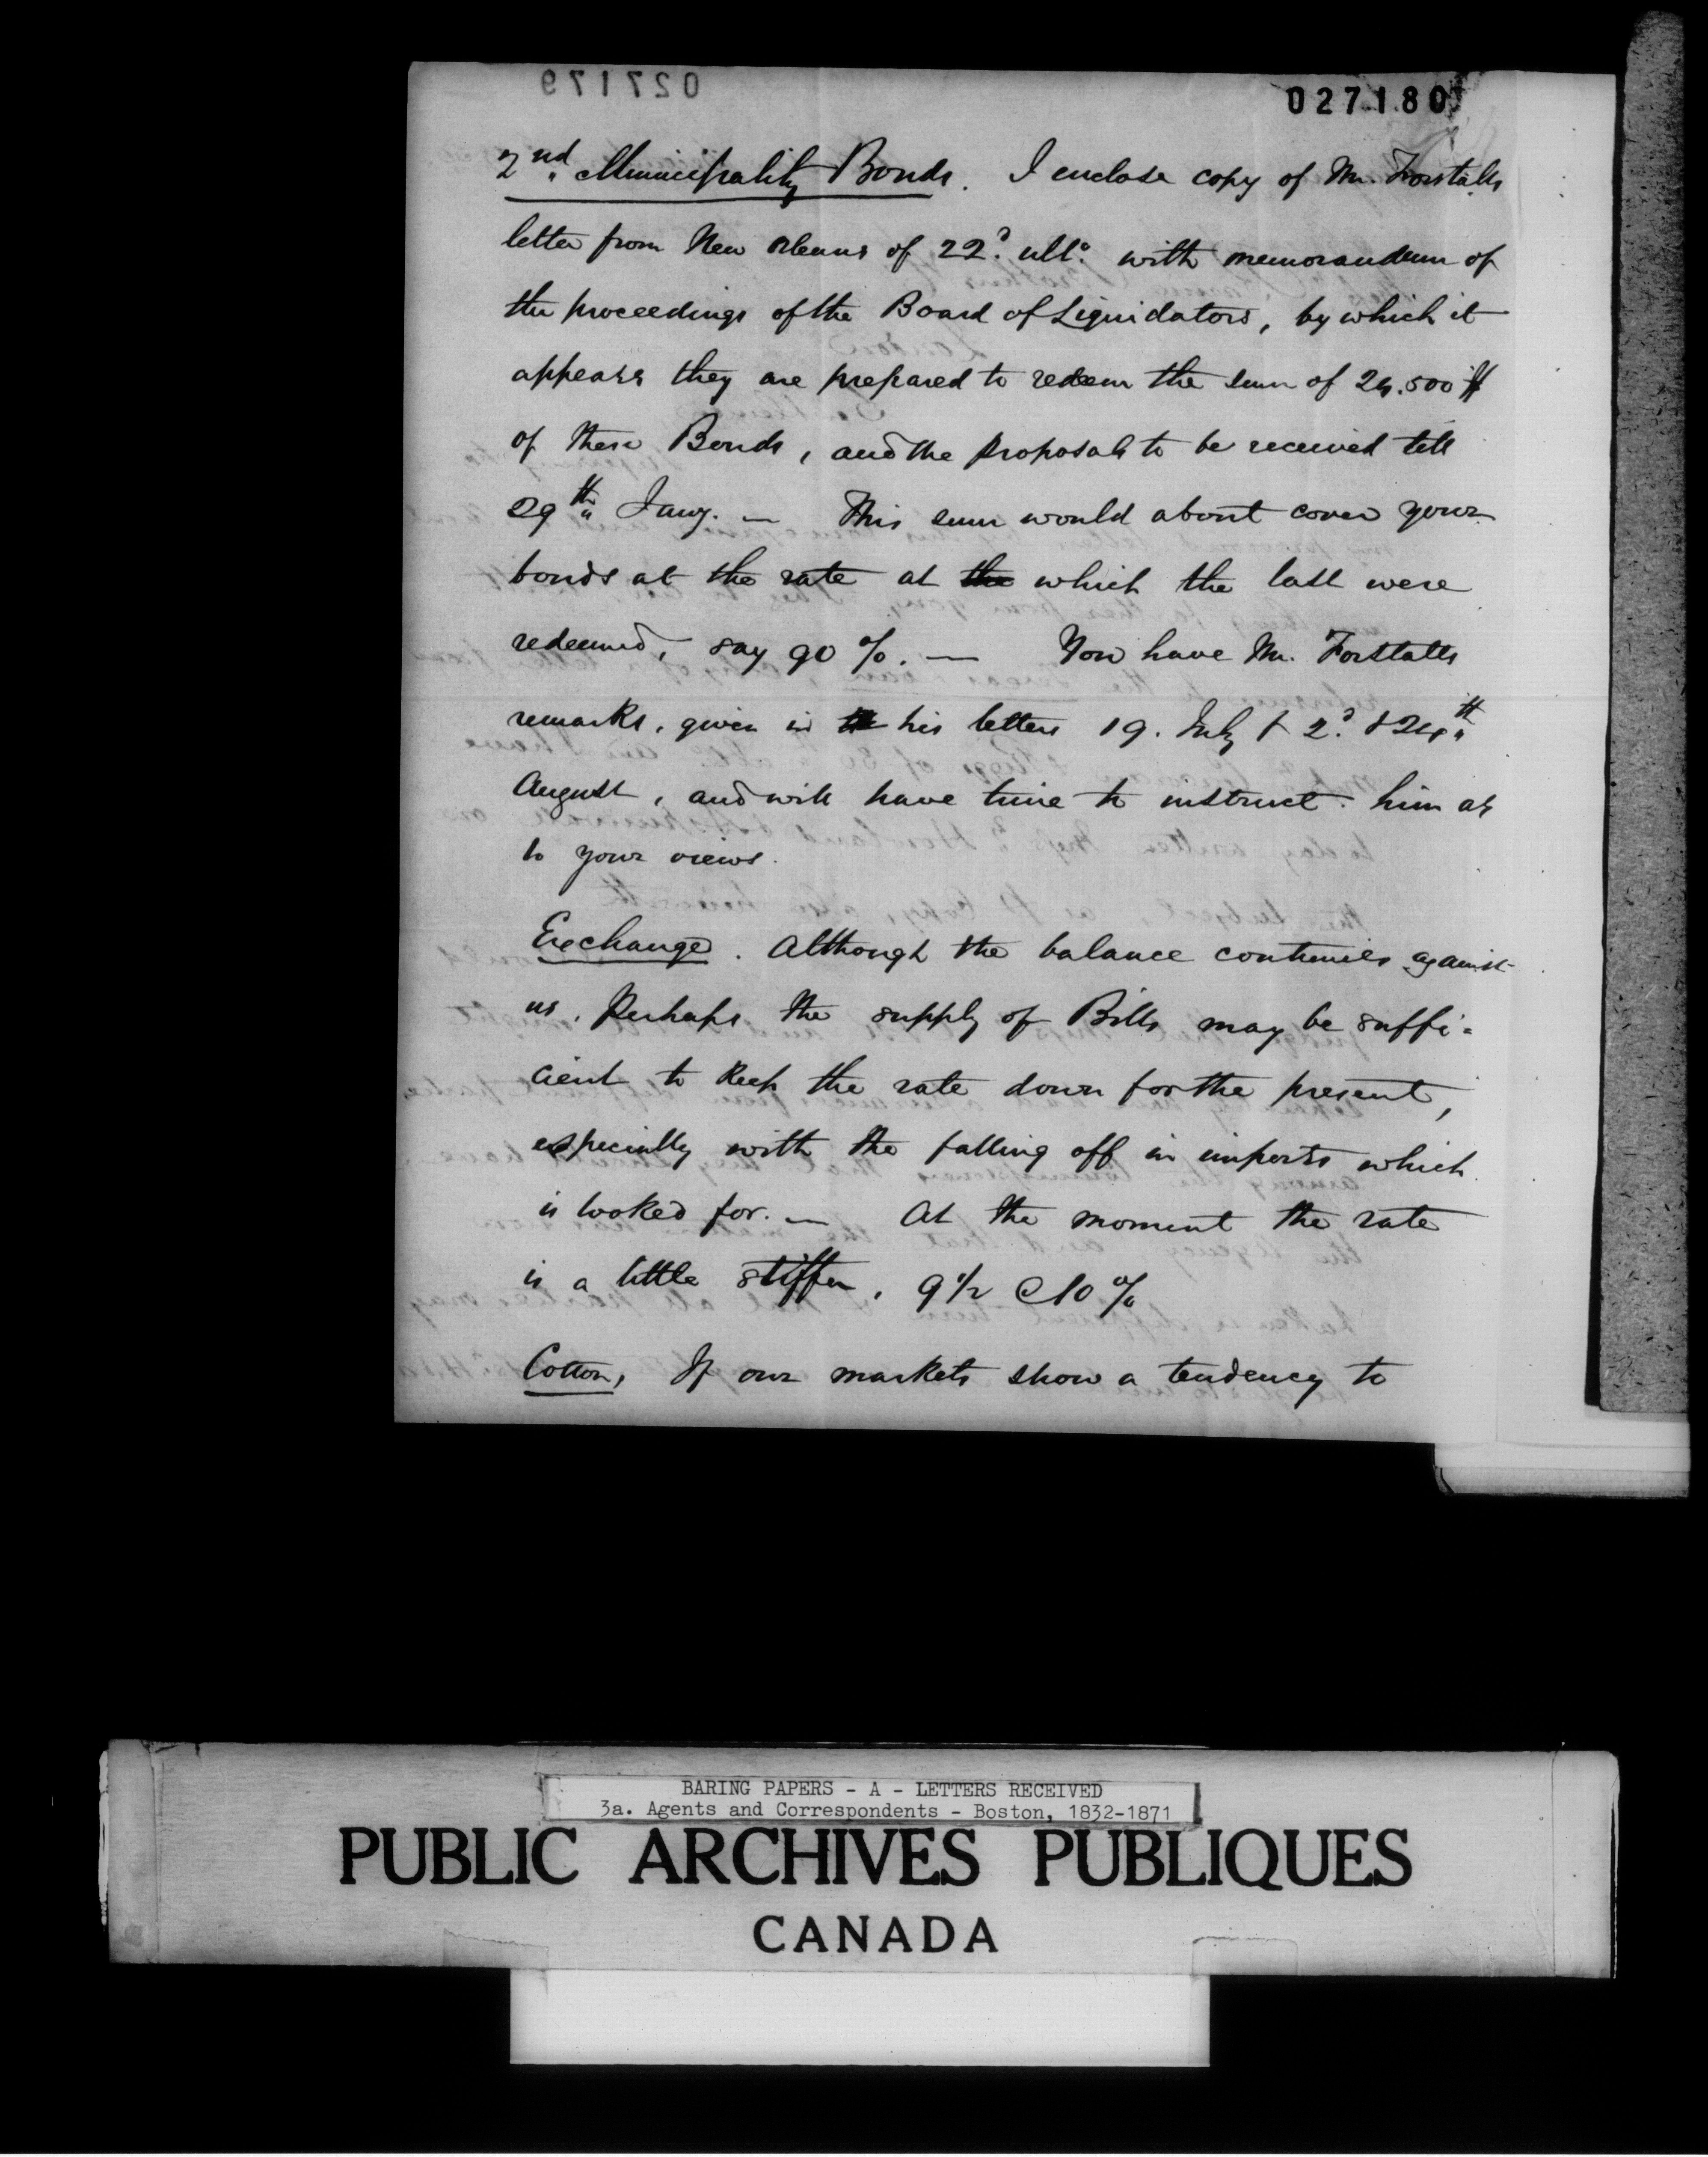 027179
027180
2nd. Municipality Bonds. I enclose copy of Mr. Forstalls
letter from New Orleans of 22d. ulto. with memorandum of
the proceedings of the Board of Liquidators, by which it
appears they are prepared to redeem the sum of 24.500 $
of these Bonds, and the proposals to be received till
29th Jany. — This sum would about cover your
bonds at the rate at the which the last were
redeemed, say 90 %. — You have Mr. Forstalls
remarks, given in his letters 19. July & 2d. & 24th
August, and will have time to instruct him as
to your views.
Exchange. Although the balance continues against
us. Perhaps the supply of Bills may be suffi=
cient to keep the rate down for the present,
especially with the falling off in imports which
is looked for. — At the moment the rate
is a little stiffer, 9 1/2 @ 10 %
Cotton, If our markets show a tendency to
BARING PAPERS - A - LETTERS RECEIVED
3a. Agents and Correspondents - Boston, 1832-1871
PUBLIC ARCHIVES PUBLIQUES
CANADA